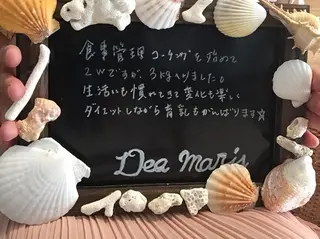 食事管理コーチングを始めて
2Wですが、3kgへりました。
生活にも慣れてきて変化も楽しく
ダイエットしながら育乳もがんばります☆
Dea Maris